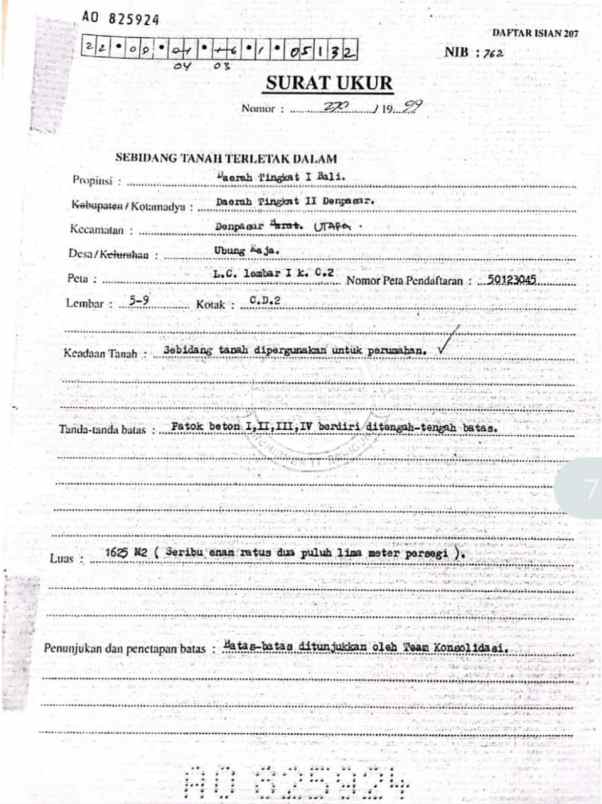 AO 825924
DAFTAR ISIAN 207
22•09•04•16•1•05132
NIB : 762
04 03
SURAT UKUR
Nomor : 270 / 1999
SEBIDANG TANAH TERLETAK DALAM
Propinsi : Daerah Tingkat I Bali.
Kabupaten / Kotamadya : Daerah Tingkat II Denpasar.
Kecamatan : Denpasar Barat. UTARA .
Desa / Kelurahan : Ubung Kaja.
Peta : L.C. lembar I k. C.2 Nomor Peta Pendaftaran : 50123045
Lembar : 5-9 Kotak : C.D.2
Keadaan Tanah : Sebidang tanah dipergunakan untuk perumahan. ✓
Tanda-tanda batas : Patok beton I,II,III,IV berdiri ditengah-tengah batas.
7
Luas : 1625 M2 ( Seribu enam ratus dua puluh lima meter persegi ).
Penunjukan dan penetapan batas : Batas-batas ditunjukkan oleh Team Konsolidasi.
AO 825924